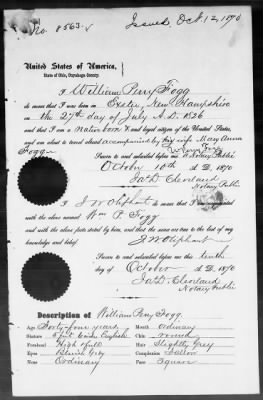 No. 8563.
Issued, Oct. 12, 1870
United States of America.
State of Ohio, Cuyahoga County.
I William Perry Fogg
do swear that I was born in Exeter, New Hampshire
on the 27th day of July A.D. 1826
and that I am a native born and legal citizen of the United States,
and am about to travel abroad accompanied by my wife Mary Anna
Fogg.
Wm P. Fogg
Sworn to and subscribed before me a Notary Public
October 10th A.D. 1870
Jas D. Cleveland
Notary Public
I J W Oliphant do swear that I am acquainted with
the above named Wm P. Fogg
and with the above facts stated by him, and that the same are true to the best of my
knowledge and belief.
J W Oliphant
Sworn to and subscribed before me this tenth
day of October A.D. 1870
Jas D. Cleveland
Notary Public
Description of William Perry Fogg.
Age Forty-four years Mouth ordinary
Stature 5 feet Inches English Chin round
Forehead High & full Hair Slightly Grey
Eyes Blueish Grey Complexion Sallow
Nose Ordinary Face Square